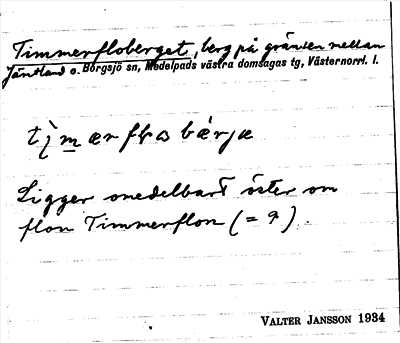 Timmerfloberget, berg på gränsen mellan
Jämtland o. Borgsjö sn, Medelpads västra domsagas tg, Västernorrl. l.
Ligger omedelbart öster om
flon Timmerflon (= 9).
VALTER JANSSON 1934